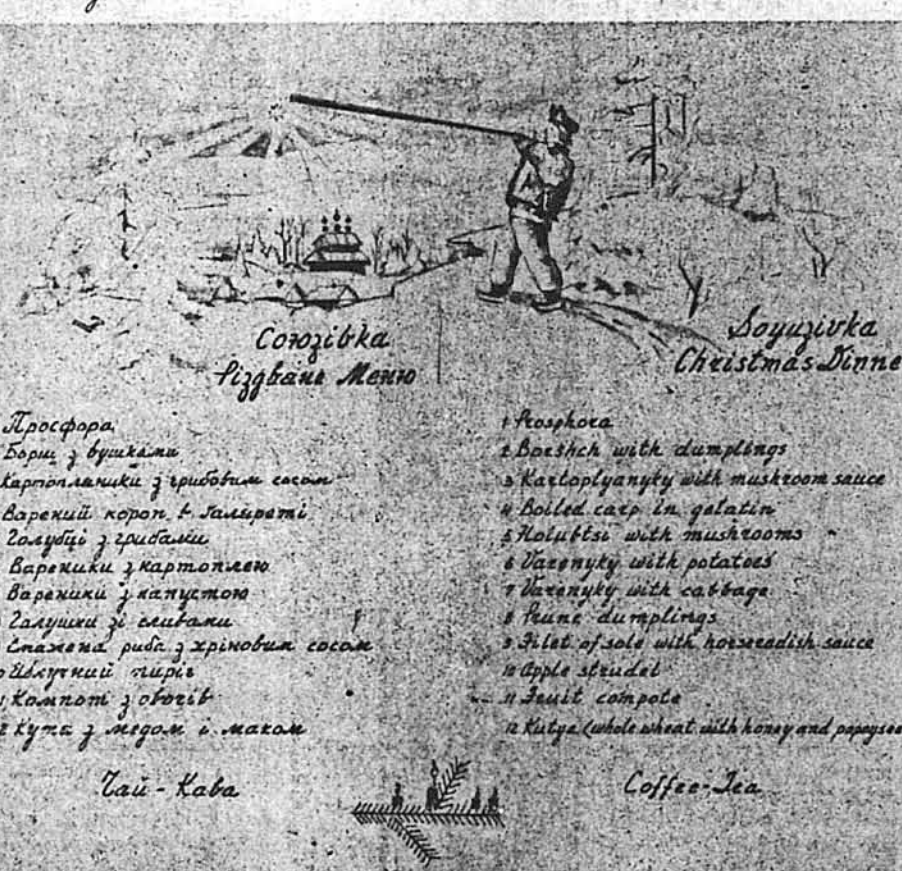 Союзівка
Різдвяне Меню
Просфора
Борщ з вушками
Картопляники з грибовим сосом
Варений короп в галяреті
Голубці з грибами
Вареники з картоплею
Вареники з капустою
Галушки зі сливами
Смажена риба з хріновим сосом
Яблучний пиріг
Компот з овочів
Кутя з медом і маком
Чай - Кава
Soyuzivka
Christmas Dinne
1 Prosphora
2 Borshch with dumplings
3 Kartoplyanyky with mushroom sauce
4 Boiled carp in gelatin
5 Holubtsi with mushrooms
6 Varenyky with potatoes
7 Varenyky with cabbage
8 Prune dumplings
9 Filet of sole with horseradish sauce
10 Apple strudel
11 Fruit compote
12 Kutya (whole wheat with honey and popysee
Coffee-Tea